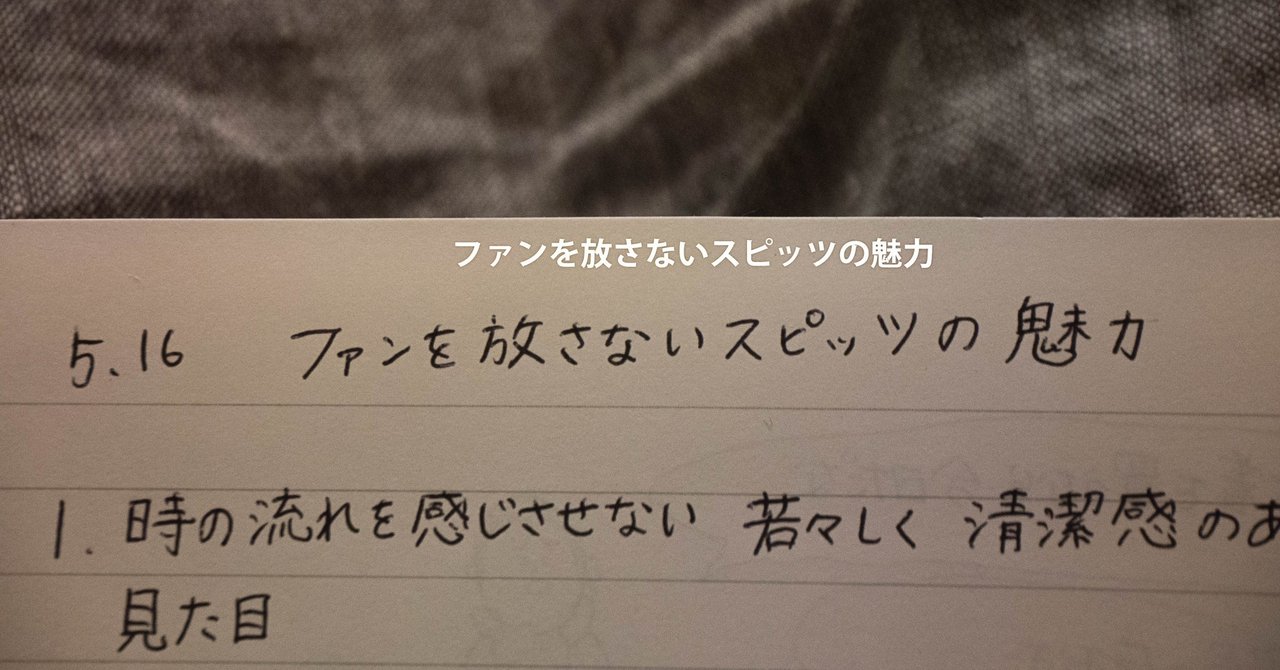 ファンを放さないスピッツの魅力
5.16 ファンを放さないスピッツの魅力
1. 時の流れを感じさせない 若々しく 清潔感のあ
見た目